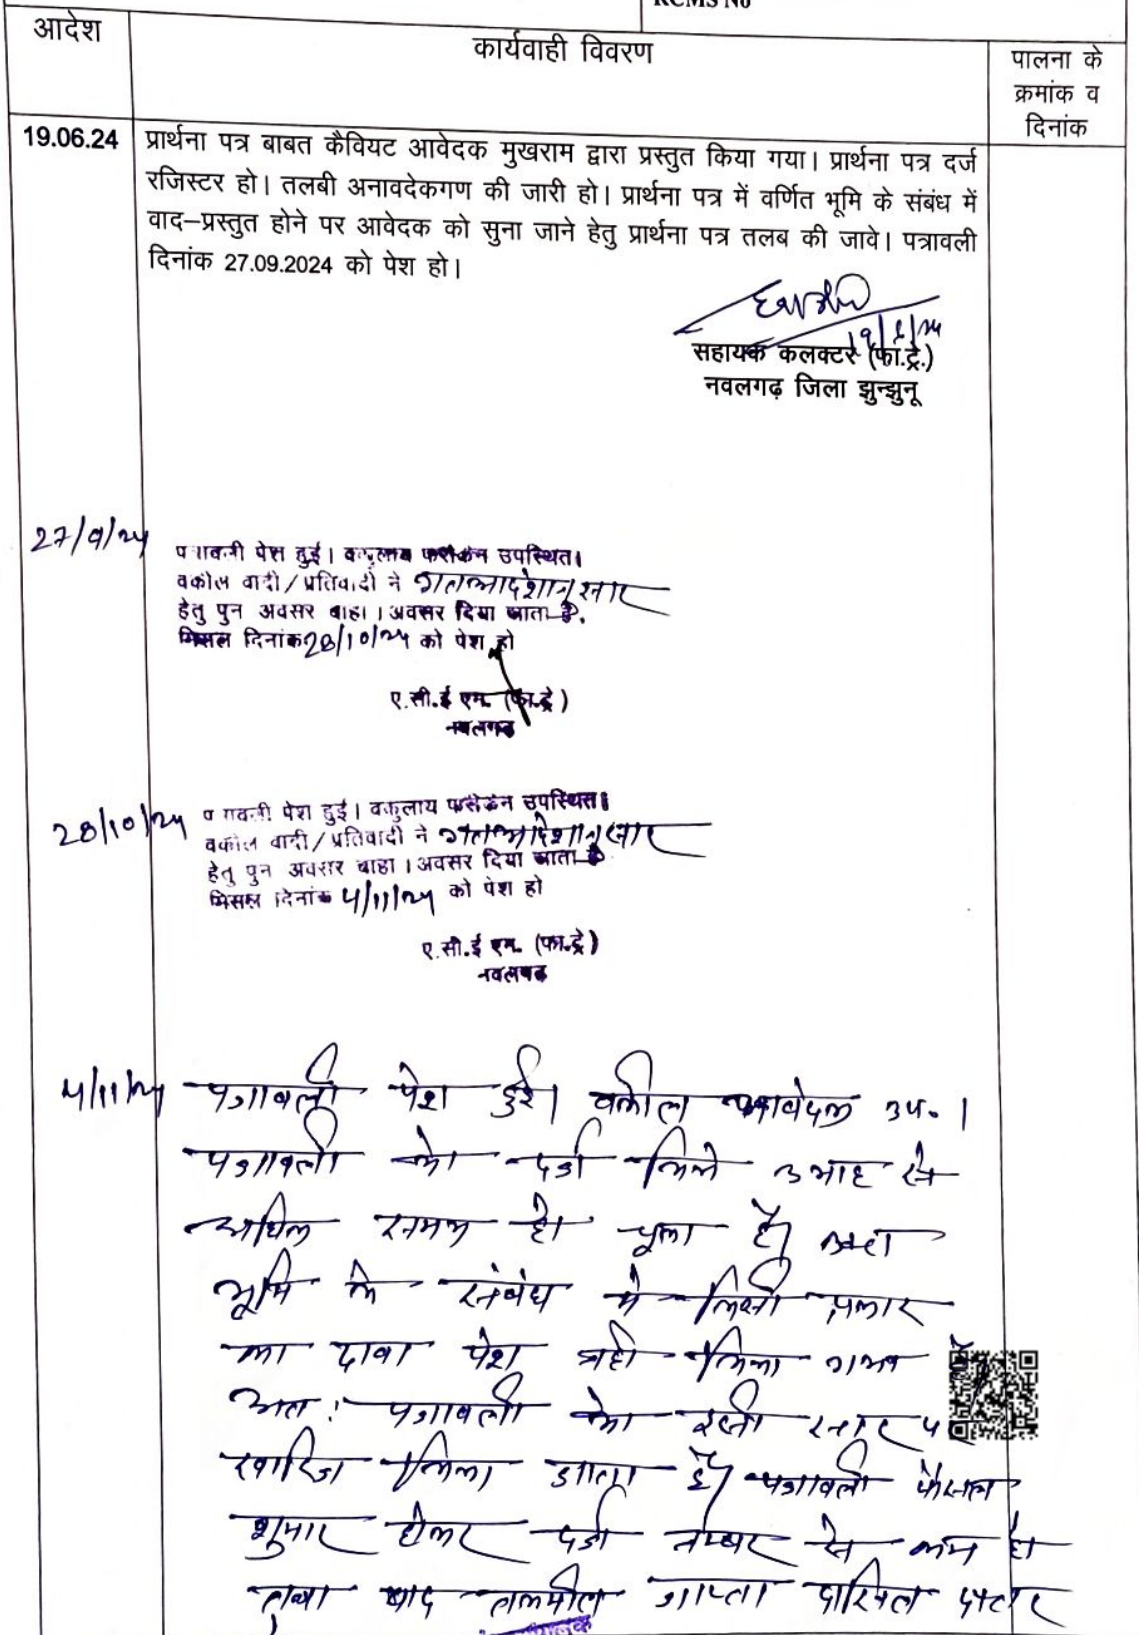 RCMS No
आदेश
कार्यवाही विवरण
पालना के
क्रमांक व
दिनांक
19.06.24
प्रार्थना पत्र बाबत कैवियट आवेदक मुखराम द्वारा प्रस्तुत किया गया। प्रार्थना पत्र दर्ज
रजिस्टर हो। तलबी अनावदेकगण की जारी हो। प्रार्थना पत्र में वर्णित भूमि के संबंध में
वाद–प्रस्तुत होने पर आवेदक को सुना जाने हेतु प्रार्थना पत्र तलब की जावे। पत्रावली
दिनांक 27.09.2024 को पेश हो।
19/6/24
सहायक कलक्टर (फा.ट्रे.)
नवलगढ़ जिला झुन्झुनू
27/9/24
पत्रावली पेश हुई। वकुलाय फरीकेन उपस्थित।
वकील वादी / प्रतिवादी ने गतआदेशानुसार
हेतु पुन अवसर चाहा। अवसर दिया जाता है.
मिसल दिनांक 28/10/24 को पेश हो
ए.सी.ई एम. (फा.ट्रे)
नवलगढ
28/10/24
पत्रावली पेश हुई। वकुलाय फरीकेन उपस्थित।
वकील वादी / प्रतिवादी ने गतआदेशानुसार
हेतु पुन अवसर चाहा। अवसर दिया जाता है
मिसल दिनांक 4/11/24 को पेश हो
ए.सी.ई एम. (फा.ट्रे)
नवलगढ
4/11/24
पत्रावली पेश हुई। वकील आवेदक उप.।
पत्रावली को दर्ज किये 3 माह से
अधिक समय हो चूका है।
भूमि के संबंध मे किसी प्रकार
का दावा पेश नही किया गया है
अत: पत्रावली को इसी स्तर पर
खारिज किया जाता है। पत्रावली फैसल
शुमार होकर दर्ज नम्बर से कम हो
बाद तकमील जाप्ता दाखिल दफ्तर